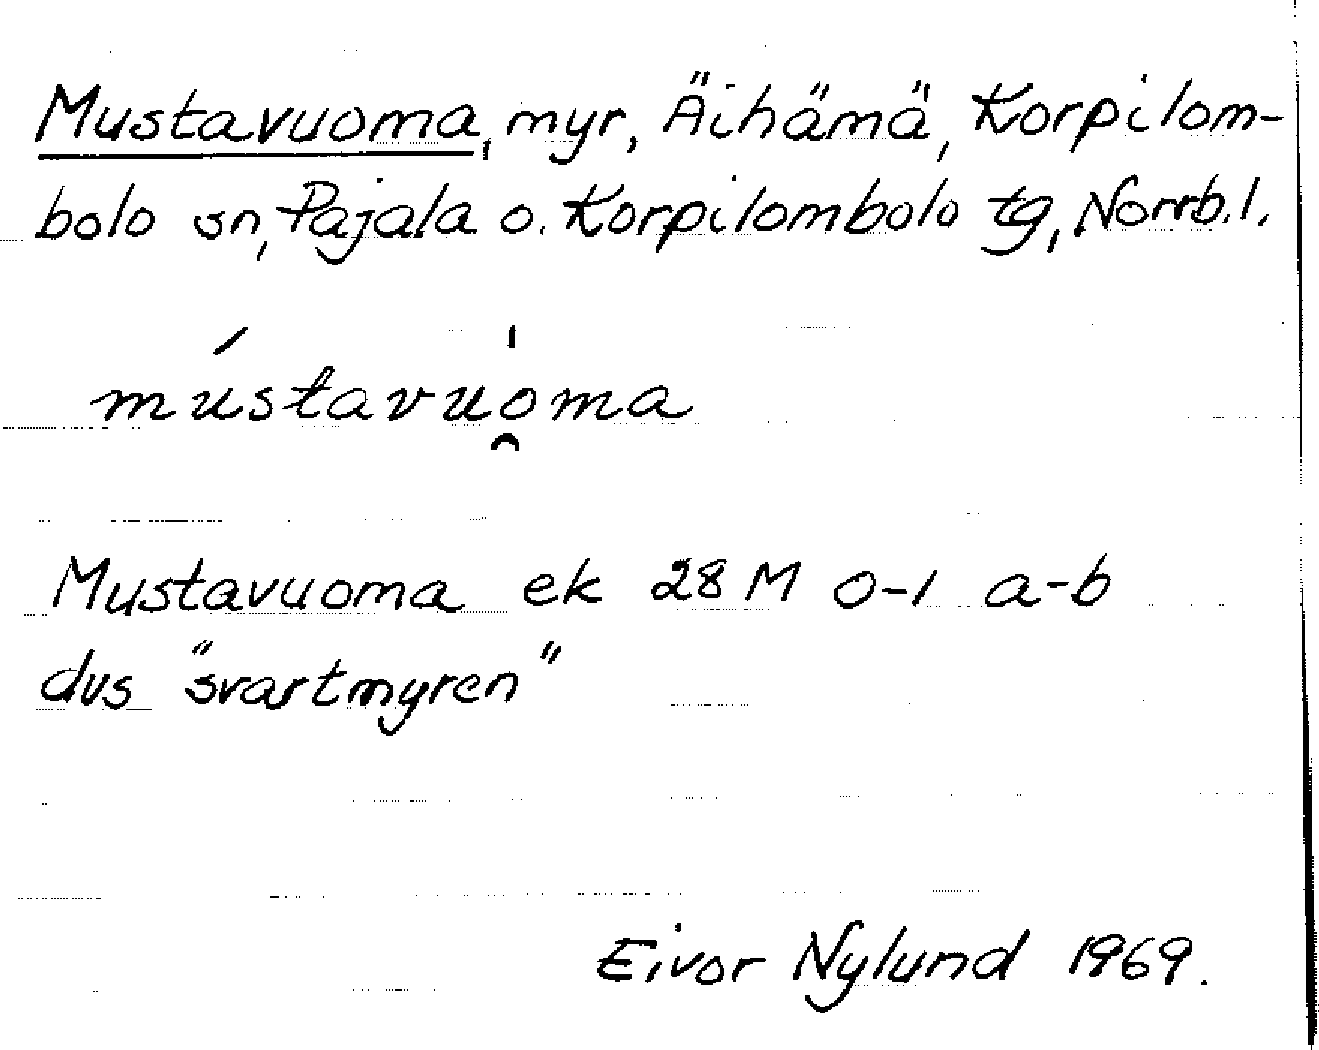 Mustavuoma, myr, Äihämä, Korpilom-
bolo sn, Pajala o. Korpilombolo tg, Norrb. l.
mústavuo̯ma
Mustavuoma ek 28 M 0-1 a-b
dvs "svartmyren"
Eivor Nylund 1969.